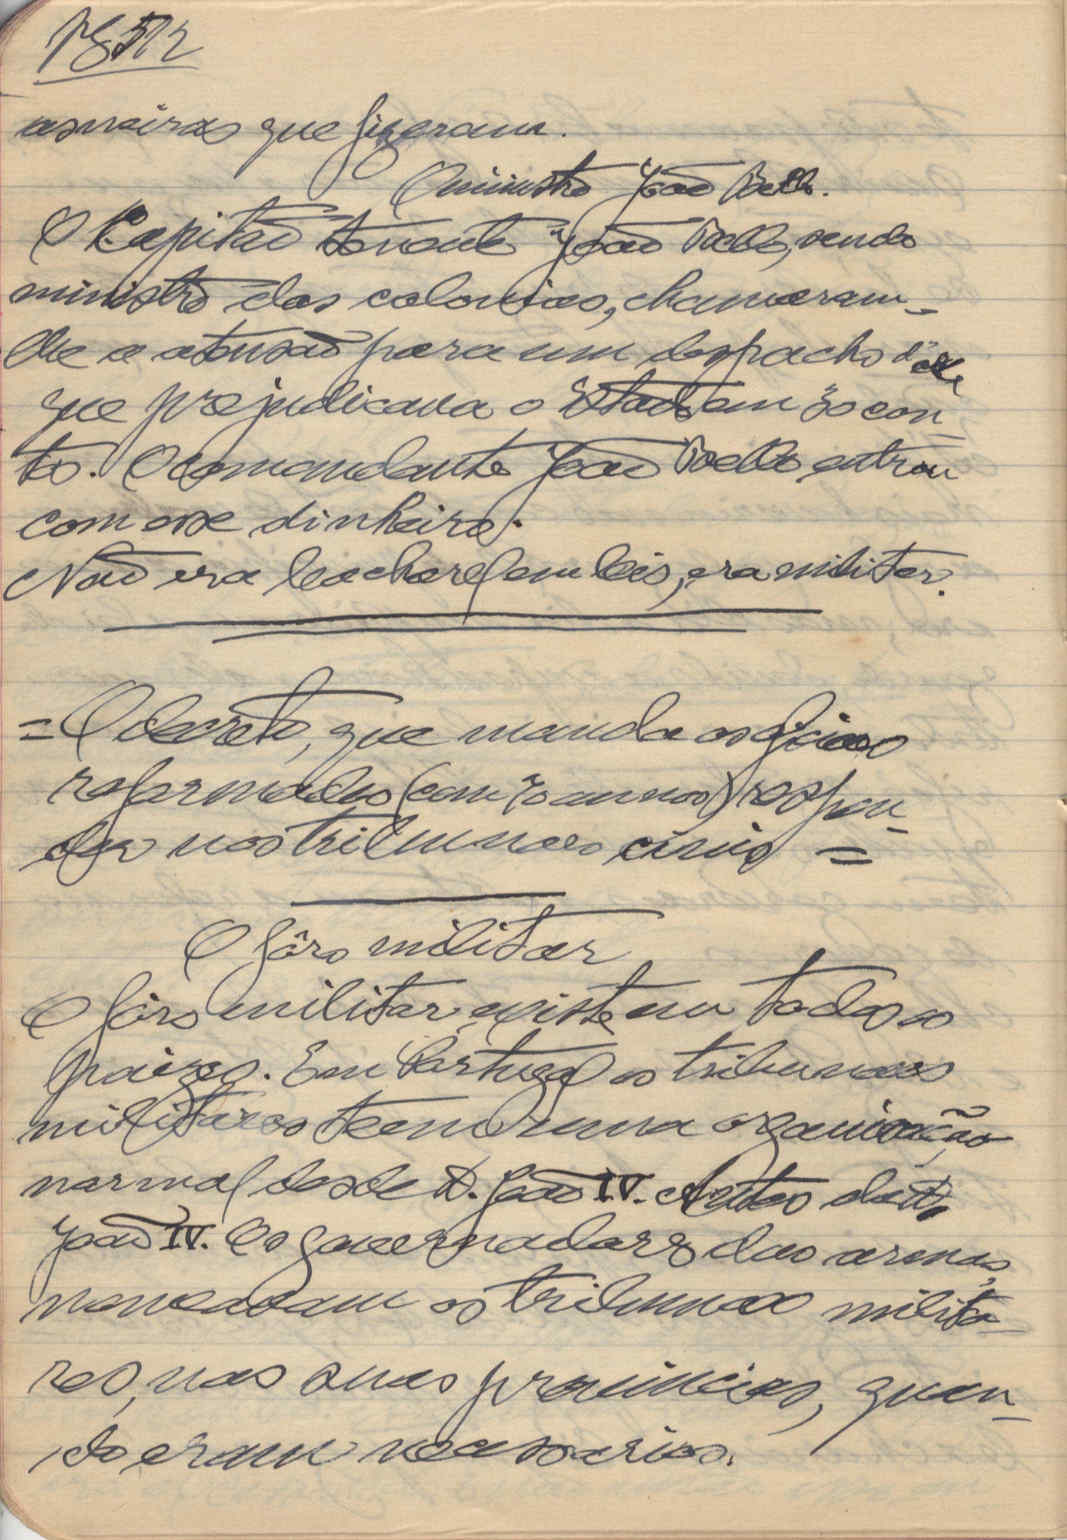 pg 512
asneiras que fizeram.
O ministro João Bello.
O Capitão tenente João Bello, sendo
ministro das colonias, chamaram-
lhe a atensão para um despacho d'ele
que prejudicava o Estado em 30 con-
tos. O comandante João Bello entrou
com esse dinheiro.
Não era bacharel em leis, era militar.
= O decreto, que manda os oficiaes
reformados (com 70 annos) respon-
der nos tribunaes civis =
O fôro militar
O fôro militar, existe em todos os
paizes. Em Portugal os tribunaes
militares teem uma organisação
normal desde D. João IV. Antes de D.
João IV. Os governadores das armas,
nomeavam os tribunaes milita-
res, nas suas provincias, quan-
do eram necessarios.